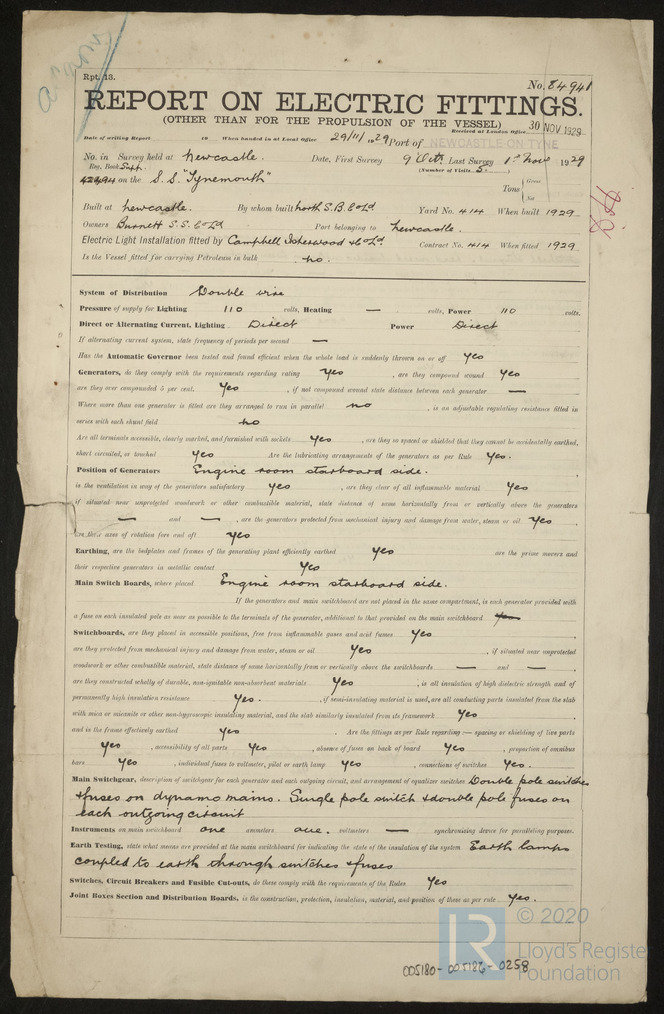 Rpt. 13.
No. 84941
REPORT ON ELECTRIC FITTINGS.
(OTHER THAN FOR THE PROPULSION OF THE VESSEL)
30 NOV 1929
Date of writing Report 19 When handed in at Local Office 29/11/1929 Port of NEWCASTLE-ON-TYNE Received at London Office
No. in Survey held at Newcastle. Date, First Survey 9 Oct. Last Survey 1st Nov 1929
Reg. Book Sup. (Number of Visits 5.)
on the S.S. "Tynemouth" Tons Gross Net
Built at Newcastle. By whom built North S.B. Co Ld Yard No. 414 When built 1929
Owners Burnett S.S. Co Ld Port belonging to Newcastle.
Electric Light Installation fitted by Campbell Isherwood & Co Ld. Contract No. 414 When fitted 1929
Is the Vessel fitted for carrying Petroleum in bulk no.
System of Distribution Double wire
Pressure of supply for Lighting 110 volts, Heating — volts, Power 110 volts.
Direct or Alternating Current, Lighting Direct Power Direct
If alternating current system, state frequency of periods per second —
Has the Automatic Governor been tested and found efficient when the whole load is suddenly thrown on or off Yes
Generators, do they comply with the requirements regarding rating Yes, are they compound wound Yes
are they over compounded 5 per cent. Yes, if not compound wound state distance between each generator —
Where more than one generator is fitted are they arranged to run in parallel no, is an adjustable regulating resistance fitted in
series with each shunt field no
Are all terminals accessible, clearly marked, and furnished with sockets Yes, are they so spaced or shielded that they cannot be accidentally earthed,
short circuited, or touched Yes Are the lubricating arrangements of the generators as per Rule Yes.
Position of Generators Engine room starboard side.
is the ventilation in way of the generators satisfactory Yes, are they clear of all inflammable material Yes
if situated near unprotected woodwork or other combustible material, state distance of same horizontally from or vertically above the generators
— and —, are the generators protected from mechanical injury and damage from water, steam or oil Yes,
are their axes of rotation fore and aft Yes
Earthing, are the bedplates and frames of the generating plant efficiently earthed Yes are the prime movers and
their respective generators in metallic contact Yes
Main Switch Boards, where placed Engine room starboard side.
If the generators and main switchboard are not placed in the same compartment, is each generator provided with
a fuse on each insulated pole as near as possible to the terminals of the generator, additional to that provided on the main switchboard Yes
Switchboards, are they placed in accessible positions, free from inflammable gases and acid fumes Yes
are they protected from mechanical injury and damage from water, steam or oil Yes, if situated near unprotected
woodwork or other combustible material, state distance of same horizontally from or vertically above the switchboards — and —,
are they constructed wholly of durable, non-ignitable non-absorbent materials Yes, is all insulation of high dielectric strength and of
permanently high insulation resistance Yes., if semi-insulating material is used, are all conducting parts insulated from the slab
with mica or micanite or other non-hygroscopic insulating material, and the slab similarly insulated from its framework Yes,
and is the frame effectively earthed Yes. Are the fittings as per Rule regarding:— spacing or shielding of live parts
Yes, accessibility of all parts Yes, absence of fuses on back of board Yes, proportion of omnibus
bars Yes, individual fuses to voltmeter, pilot or earth lamp Yes, connections of switches Yes.
Main Switchgear, description of switchgear for each generator and each outgoing circuit, and arrangement of equalizer switches Double pole switches
& fuses on dynamo mains. Single pole switch & double pole fuses on
each outgoing circuit
Instruments on main switchboard one ammeters one. voltmeters — synchronising device for paralleling purposes.
Earth Testing, state what means are provided at the main switchboard for indicating the state of the insulation of the system Earth lamps
coupled to earth through switches & fuses
Switches, Circuit Breakers and Fusible Cut-outs, do these comply with the requirements of the Rules Yes
Joint Boxes Section and Distribution Boards, is the construction, protection, insulation, material, and position of these as per rule Yes.
© 2020
Lloyd's Register
Foundation
LR
005180-005186-0258